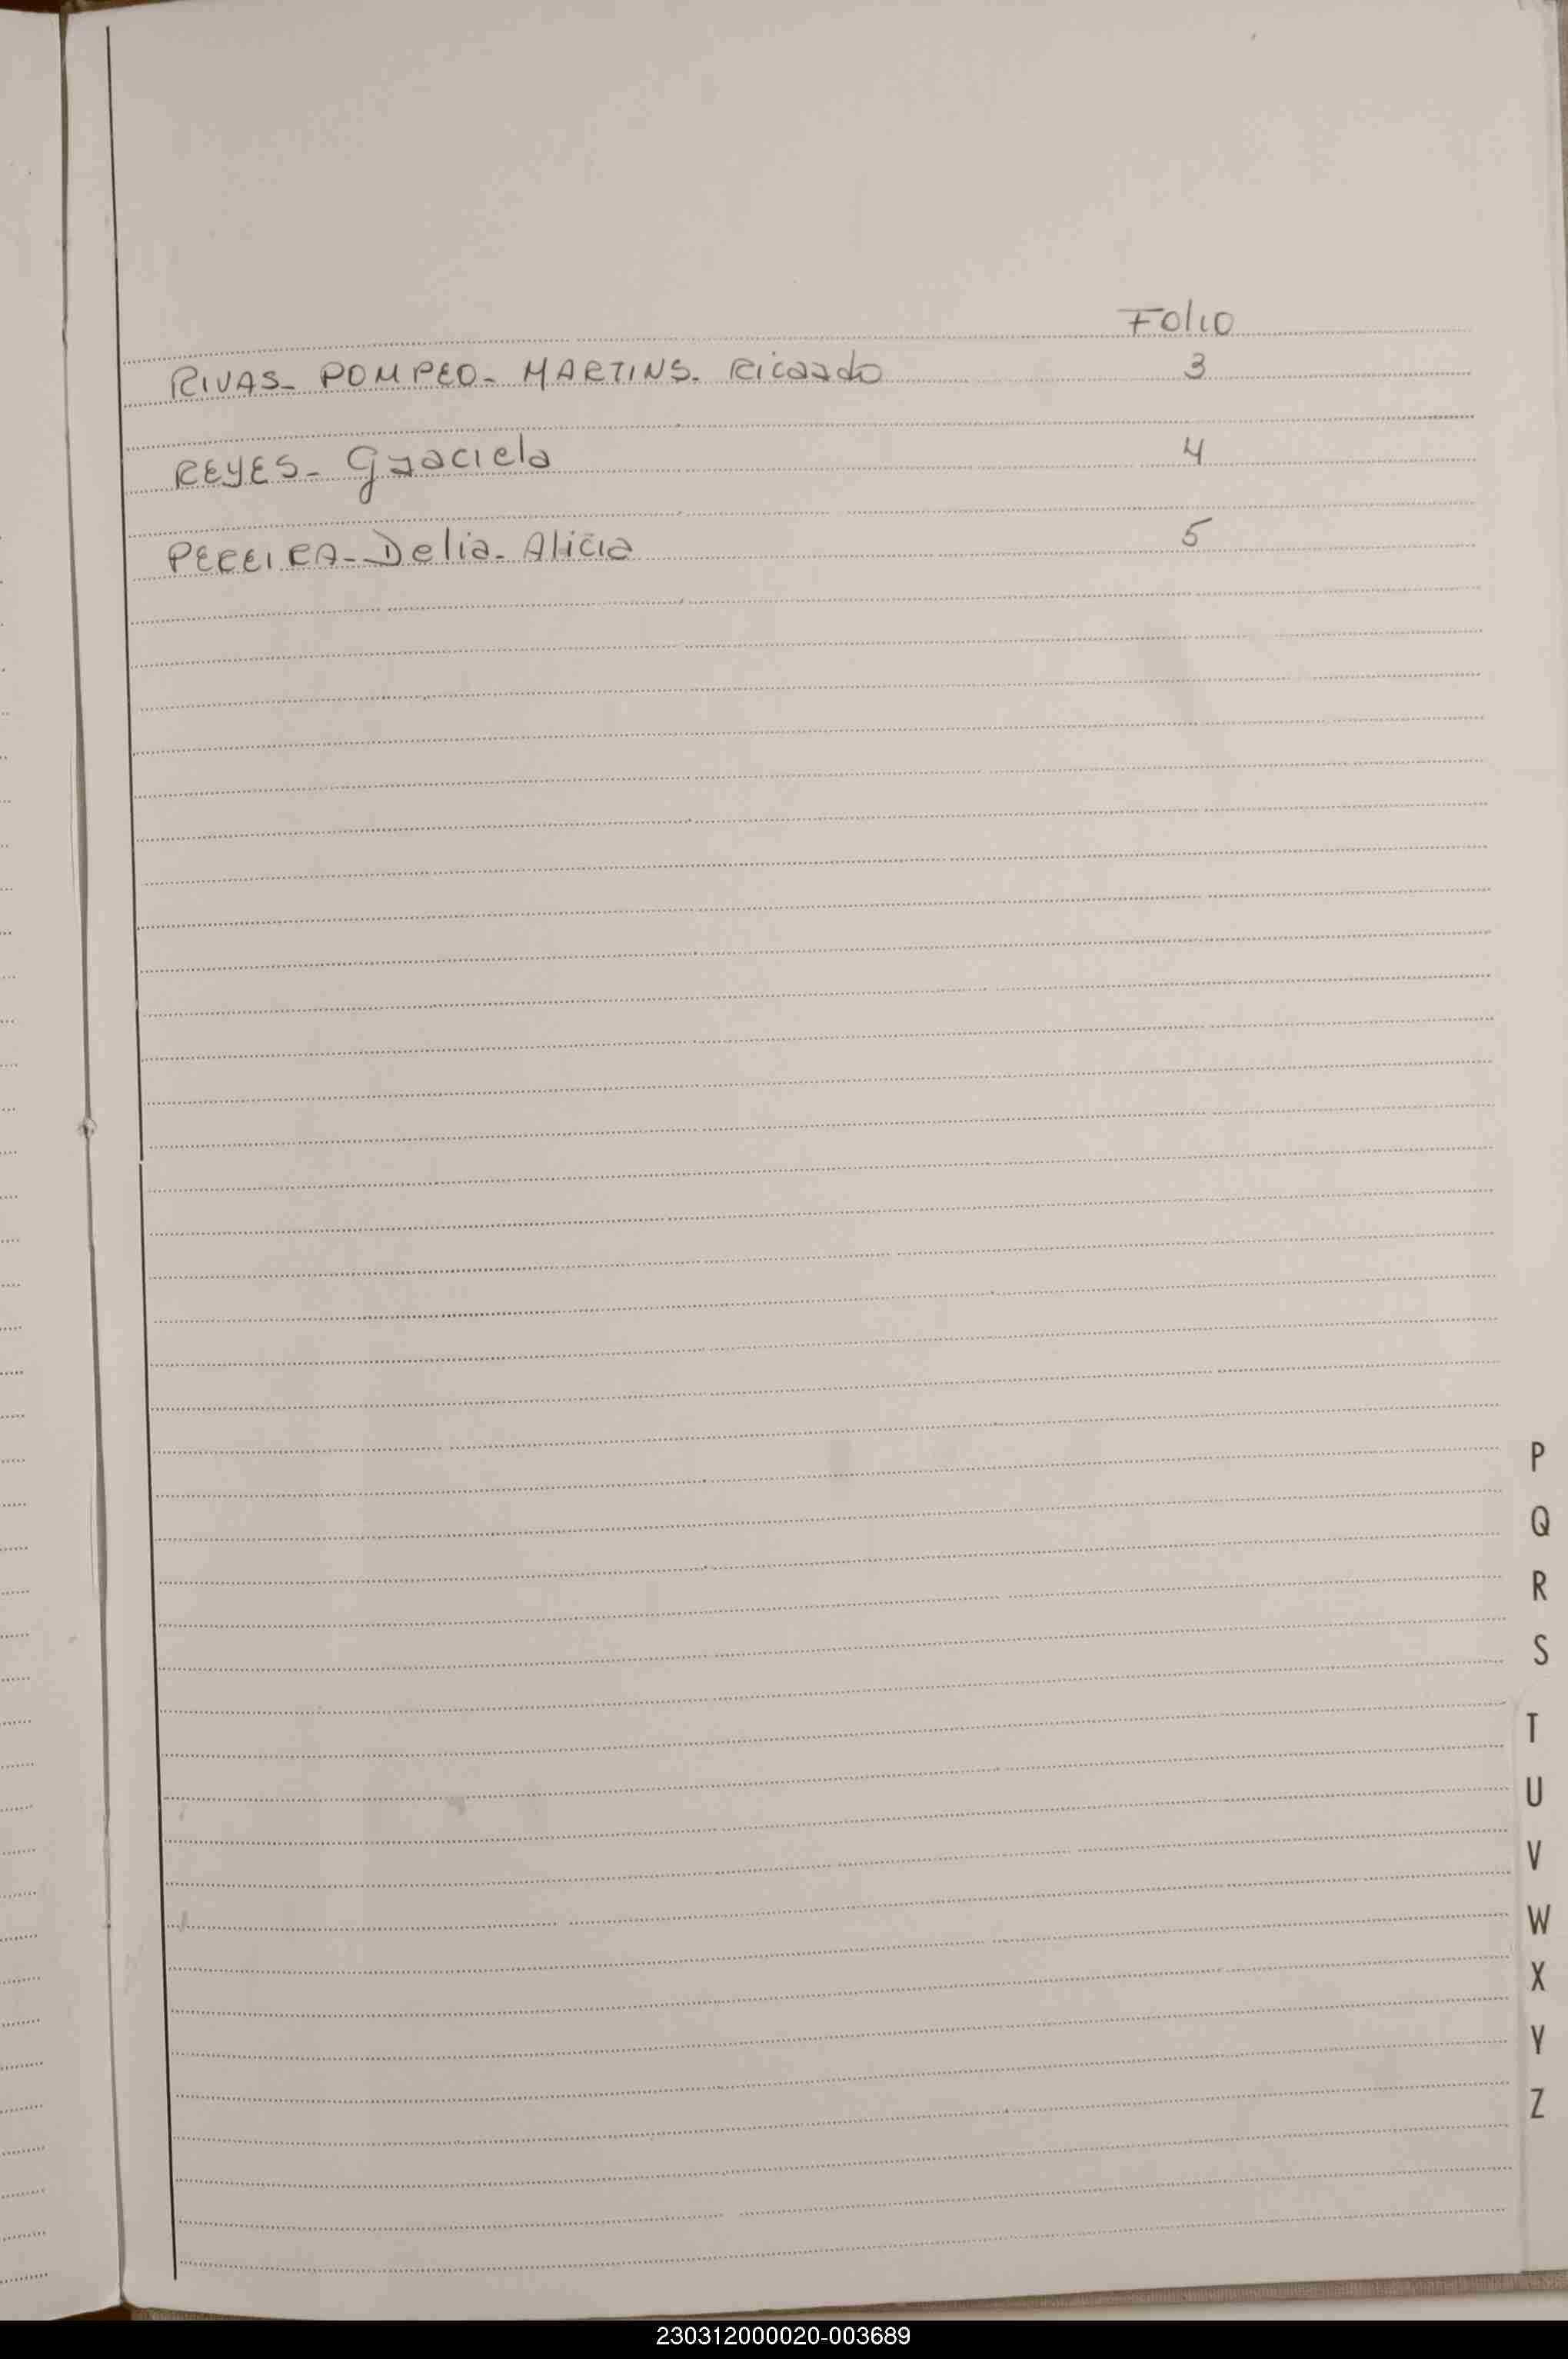 Folio
RIVAS- POMPEO- MARTINS. Ricardo 3
REYES- Graciela 4
PEREIRA- Delia- Alicia 5
P
Q
R
S
T
U
V
W
X
Y
Z
230312000020-003689